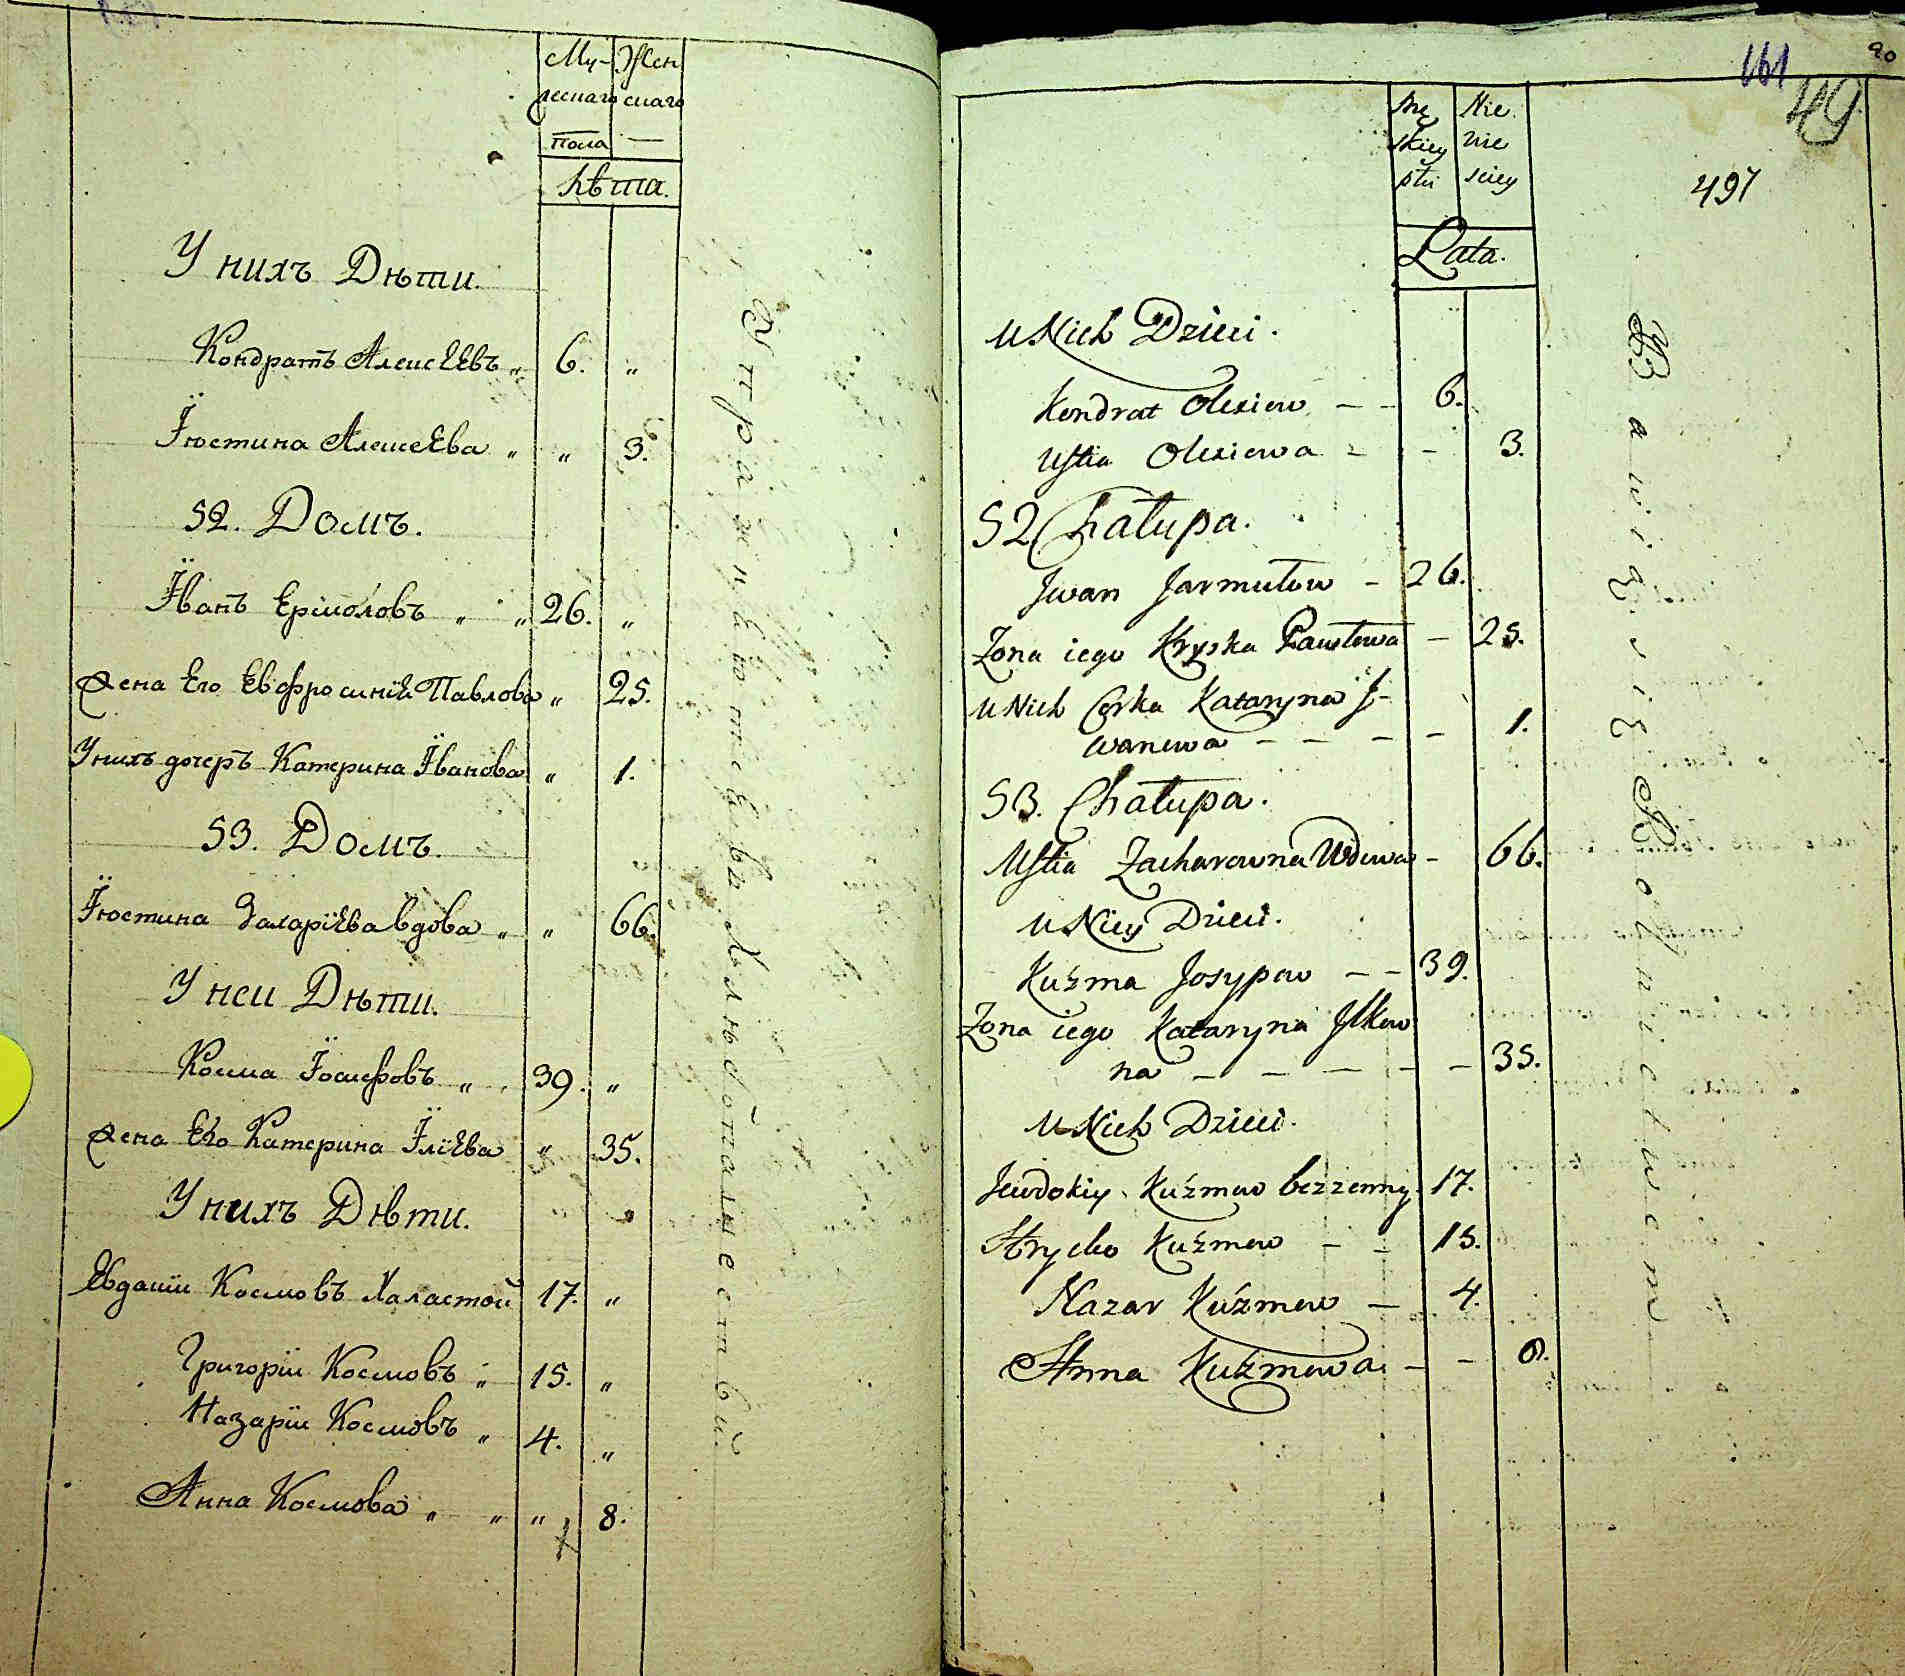 Му-
жескаго
пола
Жен
скаго
—
Лѣта.
У нихъ Дѣти.
Кондратъ Алексѣевъ „ 6. „
Їюстина Алексѣева „ „ 3.
52. Домъ.
Їванъ Ермоловъ „ „ 26. „
Жена Его Евфросинїя Павлова „ 25.
У нихъ дочеръ Катерина Їванова „ 1.
53. Домъ.
Їюстина Захарїева вдова „ „ 66.
У неи Дѣти.
Косма Їосифовъ „ 39. „
Жена Его Катерина Їлїева „ 35.
У нихъ Дѣти.
Евдокїи Космовъ Халастой 17. „
Григорїи Космовъ „ 15. „
Назарїи Космовъ „ 4. „
Анна Космова „ „ „ 8.
Упражняются въ Хлѣбопашествѣ
161
90
49
497
Mę
skiey
płci
Nie
wie
sciey
Lata.
U Nich Dzieci.
Kondrat Olexiew — — 6.
Ustia Olexiewa — — 3.
52 Chałupa.
Jwan Jarmułow — 26.
Zona iego Kryska Pawłowa — 25.
U Nich Corka Kataryna J-
wanowa — — — — 1.
53. Chałupa.
Ustia Zacharowna Wdowa — 66.
U Niey Dzieci.
Kuźma Josypow — — 39.
Zona iego Kataryna Jlkow
na — — — — — 35.
U Nich Dzieci.
Jewdokiy Kuźmow bezzenny 17.
Hryćko Kuźmow — — 15.
Nazar Kuźmow — 4.
Anna Kuźmowa — — 8.
Bawią się Rolnictwem